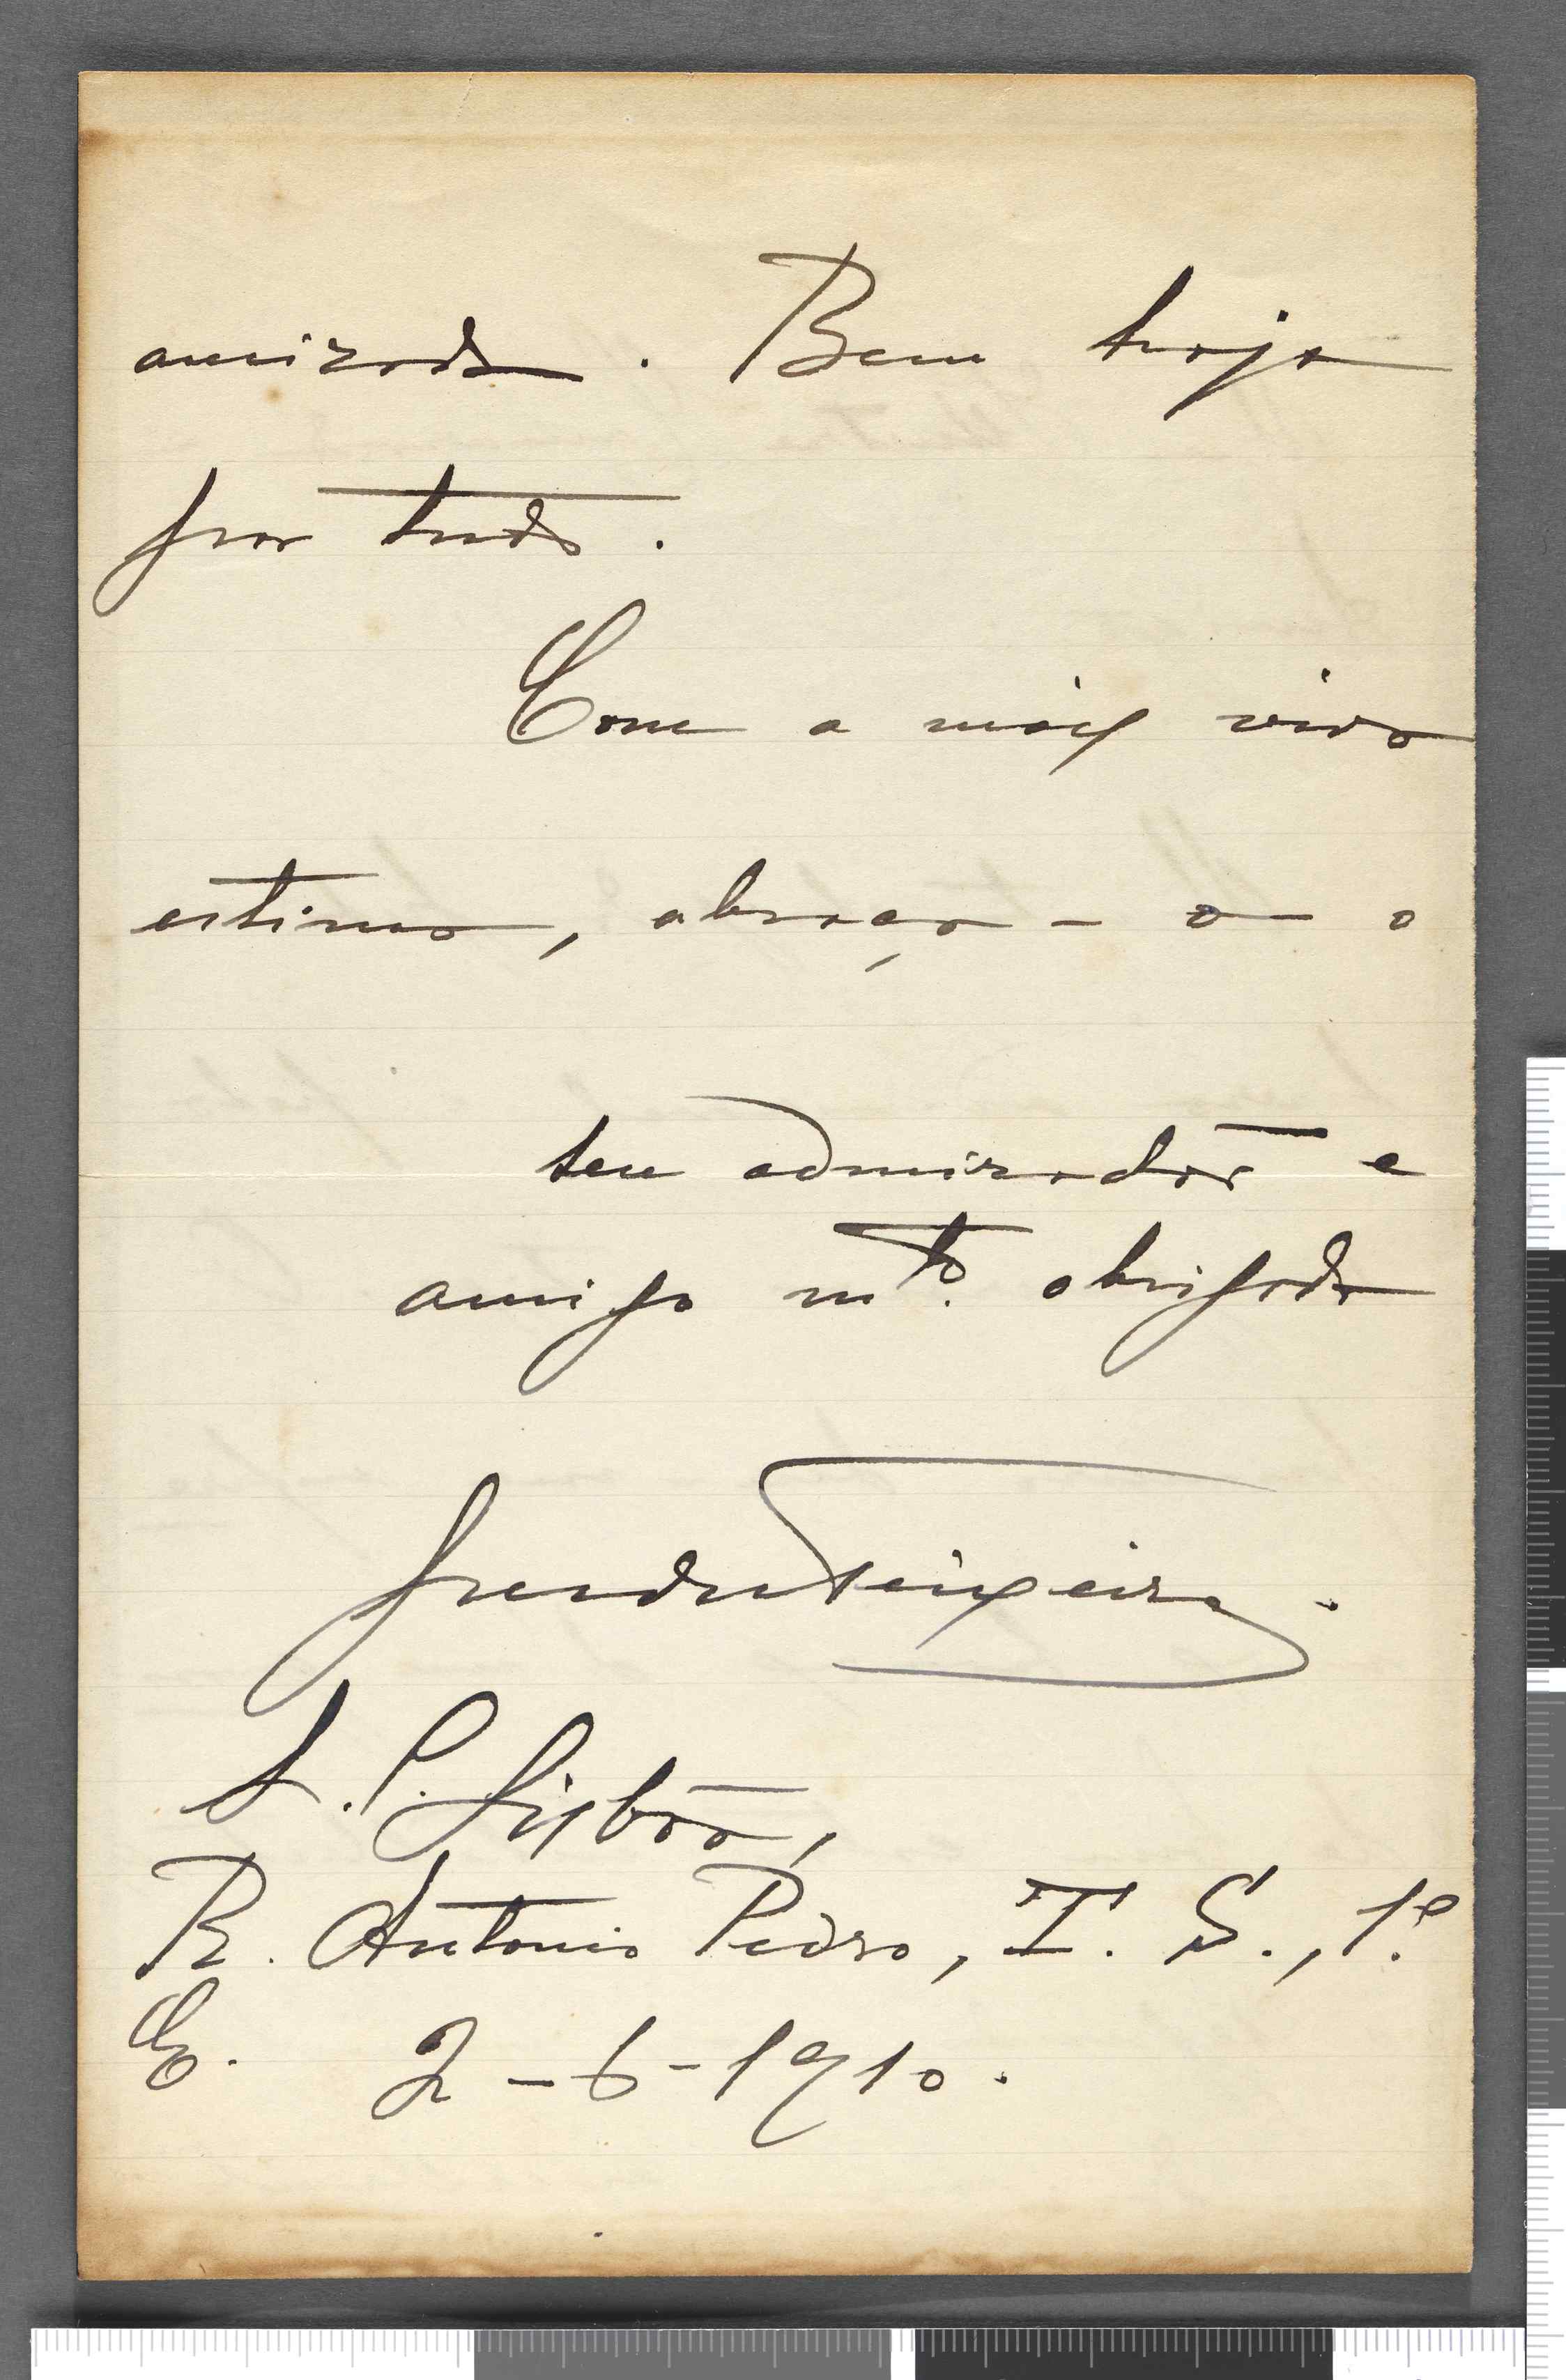 amizade. Bem haja
por tudo.
Com a mais viva
estima, abraça-o o
seu admirador e
amigo mto. obrigado
Teixeira.
S. C. Lisbôa,
R. Antonio Pedro, T. S., 1º
E. 2-6-1910.